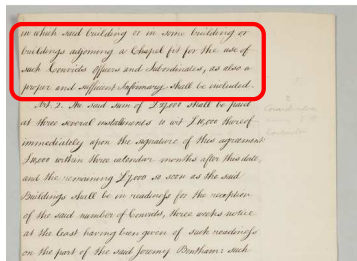 in which said building or in some building or
buildings adjoining a Chapel fit for the use of
such Convicts Officers and Subordinates, as also a
proper and sufficient Infirmary shall be included.
Art. 2. The said sum of £19,000 shall be paid
at three several installments to wit £10,000 thereof
immediately upon the signature of this agreement
within three calendar months after this date,
and the remaining so soon as the said
Buildings shall be in readiness for the reception
of the said number of Convicts, three weeks notice
at the least having been given of such readiness
on the part of the said Jeremy Bentham: such